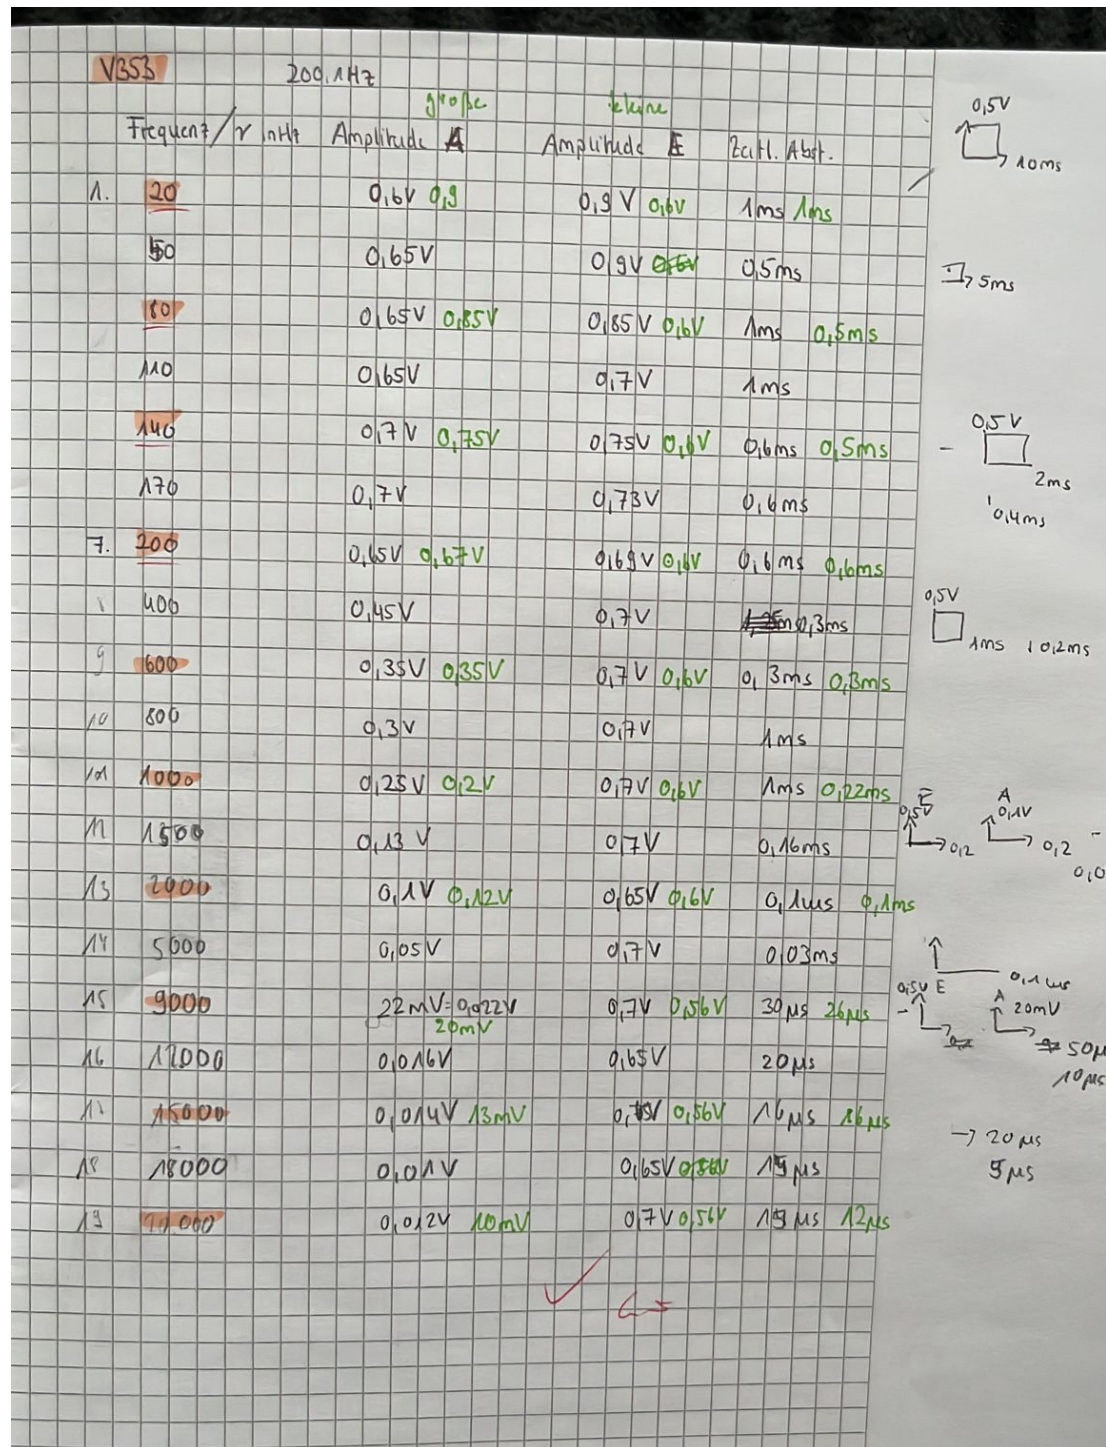 V353 200,1Hz
große kleine
Frequenz/ν in Hz Amplitude A Amplitude E Zeitl. Abst.
1. 20 0,6V 0,9 0,9 V 0,6V 1ms 1ms
50 0,65V 0,9V 0,5ms
80 0,65V 0,85V 0,85V 0,6V 1ms 0,5ms
110 0,65V 0,7V 1ms
140 0,7V 0,75V 0,75V 0,6V 0,6ms 0,5ms
170 0,7V 0,73V 0,6ms
7. 200 0,65V 0,67V 0,69V 0,6V 0,6ms 0,6ms
8 400 0,45V 0,7V 0,3ms
9 600 0,35V 0,35V 0,7V 0,6V 0,3ms 0,3ms
10 800 0,3V 0,7V 1ms
1000 0,25V 0,2V 0,7V 0,6V 1ms 0,22ms
1500 0,13V 0,7V 0,16ms
13 2000 0,1V 0,12V 0,65V 0,6V 0,1ms 0,1ms
14 5000 0,05V 0,7V 0,03ms
15 9000 22mV=0,022V 0,7V 0,56V 30µs 26µs
20mV
16 12000 0,016V 0,65V 20µs
15000 0,014V 13mV 0,56V 16µs 16µs
18 18000 0,01V 0,65V 0,56V 15µs
19 0,012V 10mV 0,7V 0,56V 15µs 12µs
0,5V
10ms
5ms
0,5V
2ms
0,4ms
0,5V
1ms 0,2ms
E A
0,5V 0,1V
0,2 0,2
0,0
0,1ms
0,5V E A 20mV
50µ
10µs
20µs
5µs